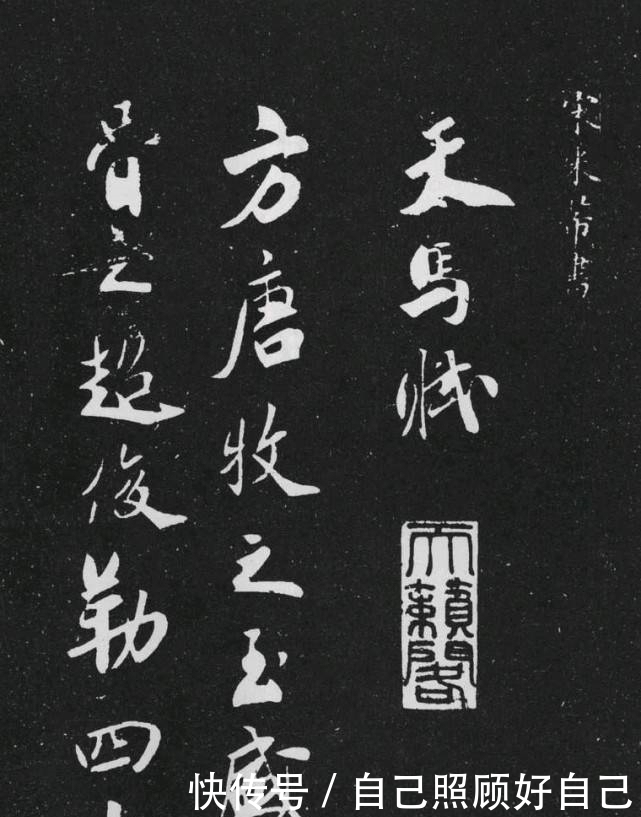 宋米芾書
天馬賦
天籟閣
方唐牧之至盛
骨之超俊勒四十
快传号 / 自己照顾好自己